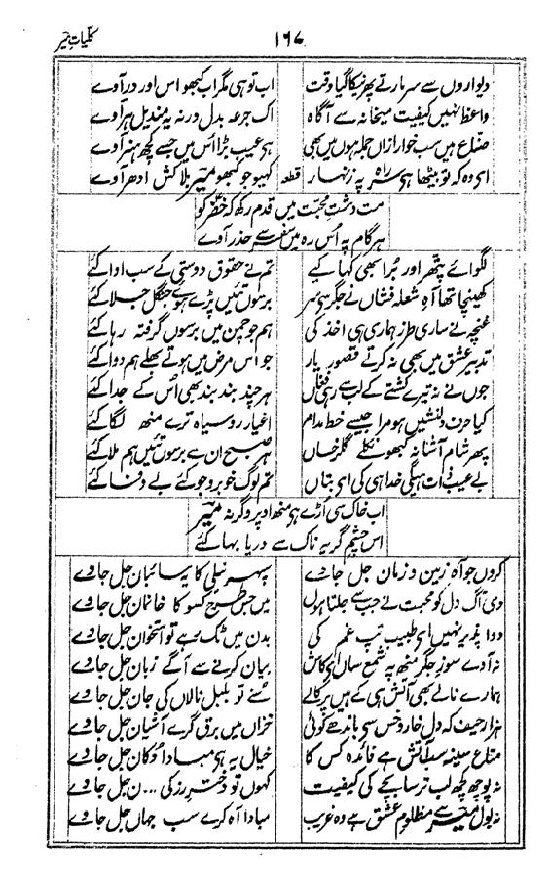 کلیاتِ میر
۱۶۷
دیواروں سے سر مارتے پھرنیکا گیا وقت اب تو ہی مگر اب کبھو اس اور در آوے
واعظ نہیں کیفیت میخانہ سے آگاہ اک جرعہ بدل ورنہ یہ مندیل ہر آوے
صناع ہیں سب خوار ازاں جملہ ہوں میں بھی ہی عیب بڑا اس میں جسے کچھ ہنر آوے
ای وہ کہ تو بیٹھا ہی سر راہ پہ زنہار قطعہ کہیو جو کبھو میر بلاکش ادھر آوے
مت دشتِ محبّت میں قدم رکھ کہ خضر کو
ہر گام پہ اس رہ میں سفر سے حذر آوے
لگوائے پتھر اور بُرا بھی کہا کیے تم نے حقوق دوستی کے سب ادا کئے
کھینچا تھا آہ شعلہ فشاں نے جگر سے سر برسوں تئیں پڑے ہوئے جنگل جلا کئے
غنچہ نے ساری طرز ہماری ہی اخذ کی ہم جو چمن میں برسوں گرفتہ رہا کئے
تدبیر عشق میں بھی نہ کرتے قصور یار جو اس مرض میں ہوتے بھلے ہم دوا کئے
جوں نے نہ تیرے کشتے کے لب سے رہی فغاں ہر چند بند بند بھی اُس کے جدا کئے
کیا حرف دلنشیں ہو مرا جیسے خط مدام اغیار روسیاہ ترے منھ لگا کئے
پھر شام آشنا نہ کبھو نکلے گلرخاں ہر صبح ان سے برسوں تئیں ہم ملا کئے
بے عیب ذات ہیگی خدا ہی کی ای بتاں تم لوگ خوبرو جو کئے بے وفا کئے
اب خاک سی اُڑے ہی منھ اوپر وگرنہ میر
اس چشم گریہ ناک سے دریا بہا کئے
کروں جو آہ زمین و زمان جل جاوے سپہر نیلی کا یہ سائبان جل جاوے
دی آگ دل کو محبت نے جب سے جلتا ہوں میں جس طرح کسو کا خانمان جل جاوے
دوا پذیر نہیں ای طبیب تپ غم کی بدن میں ٹک رہے تو استخوان جل جاوے
نہ آوے سوز جگر منھ پہ شمع ساں ای کاش بیان کرنے سے آگے زبان جل جاوے
ہمارے نالے بھی آتش ہی کے ہیں پرکالے سُنے تو بلبل نالاں کی جان جل جاوے
ہزار حیف کہ دل خار و خس سی باندھے کوئی خزاں میں برق گرے آشیان جل جاوے
متاع سینہ سب آتش ہے فائدہ کس کا خیال یہ ہی مبادا دوکان جل جاوے
نہ پوچھ کچھ لب ترسابچے کی کیفیت کہوں تو دختر رز کی ... ن جل جاوے
نہ بول میر سے مظلوم عشق ہے وہ غریب مبادا آہ کرے سب جہاں جل جاوے